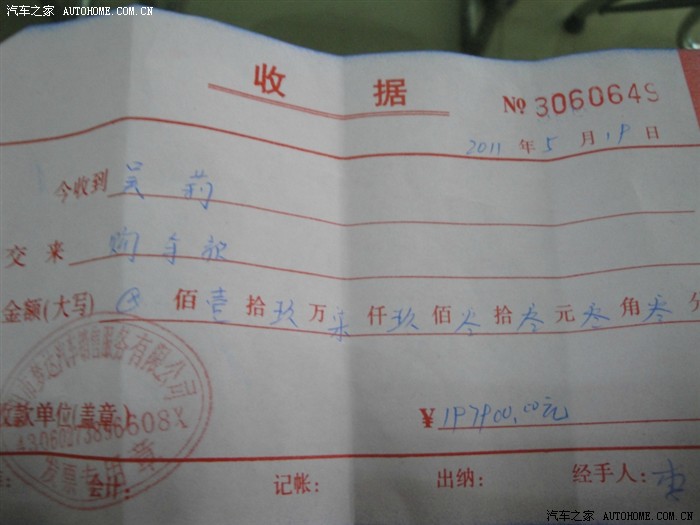 汽车之家 AUTOHOME.COM.CN
收 据
№ 3060649
2011 年 5 月 19 日
今收到 吴 莉
交来 购车款
金额(大写) ⊗ 佰 壹 拾 玖 万 柒 仟 玖 佰 零 拾 零 元 零 角 零 分
汽车销售服务有限公司
收款单位(盖章)
¥ 197900.00元
发票专用章
会计: 记帐: 出纳: 经手人:
汽车之家 AUTOHOME.COM.CN